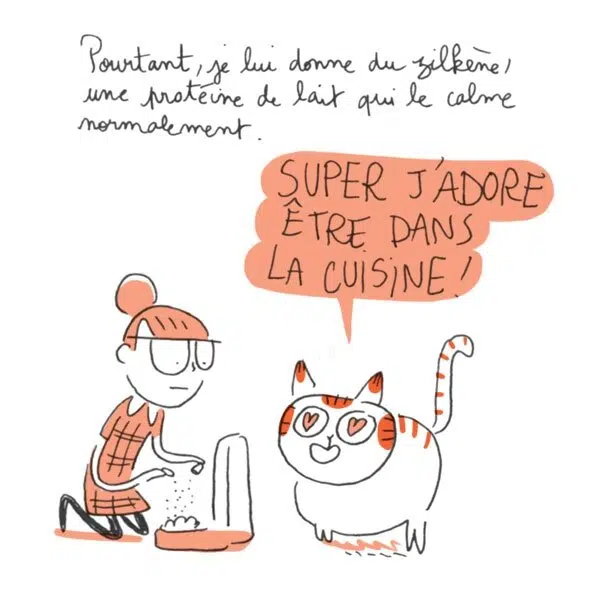 Pourtant, je lui donne du zilkène,
une protéine de lait qui le calme
normalement.
SUPER J'ADORE
ÊTRE DANS
LA CUISINE !